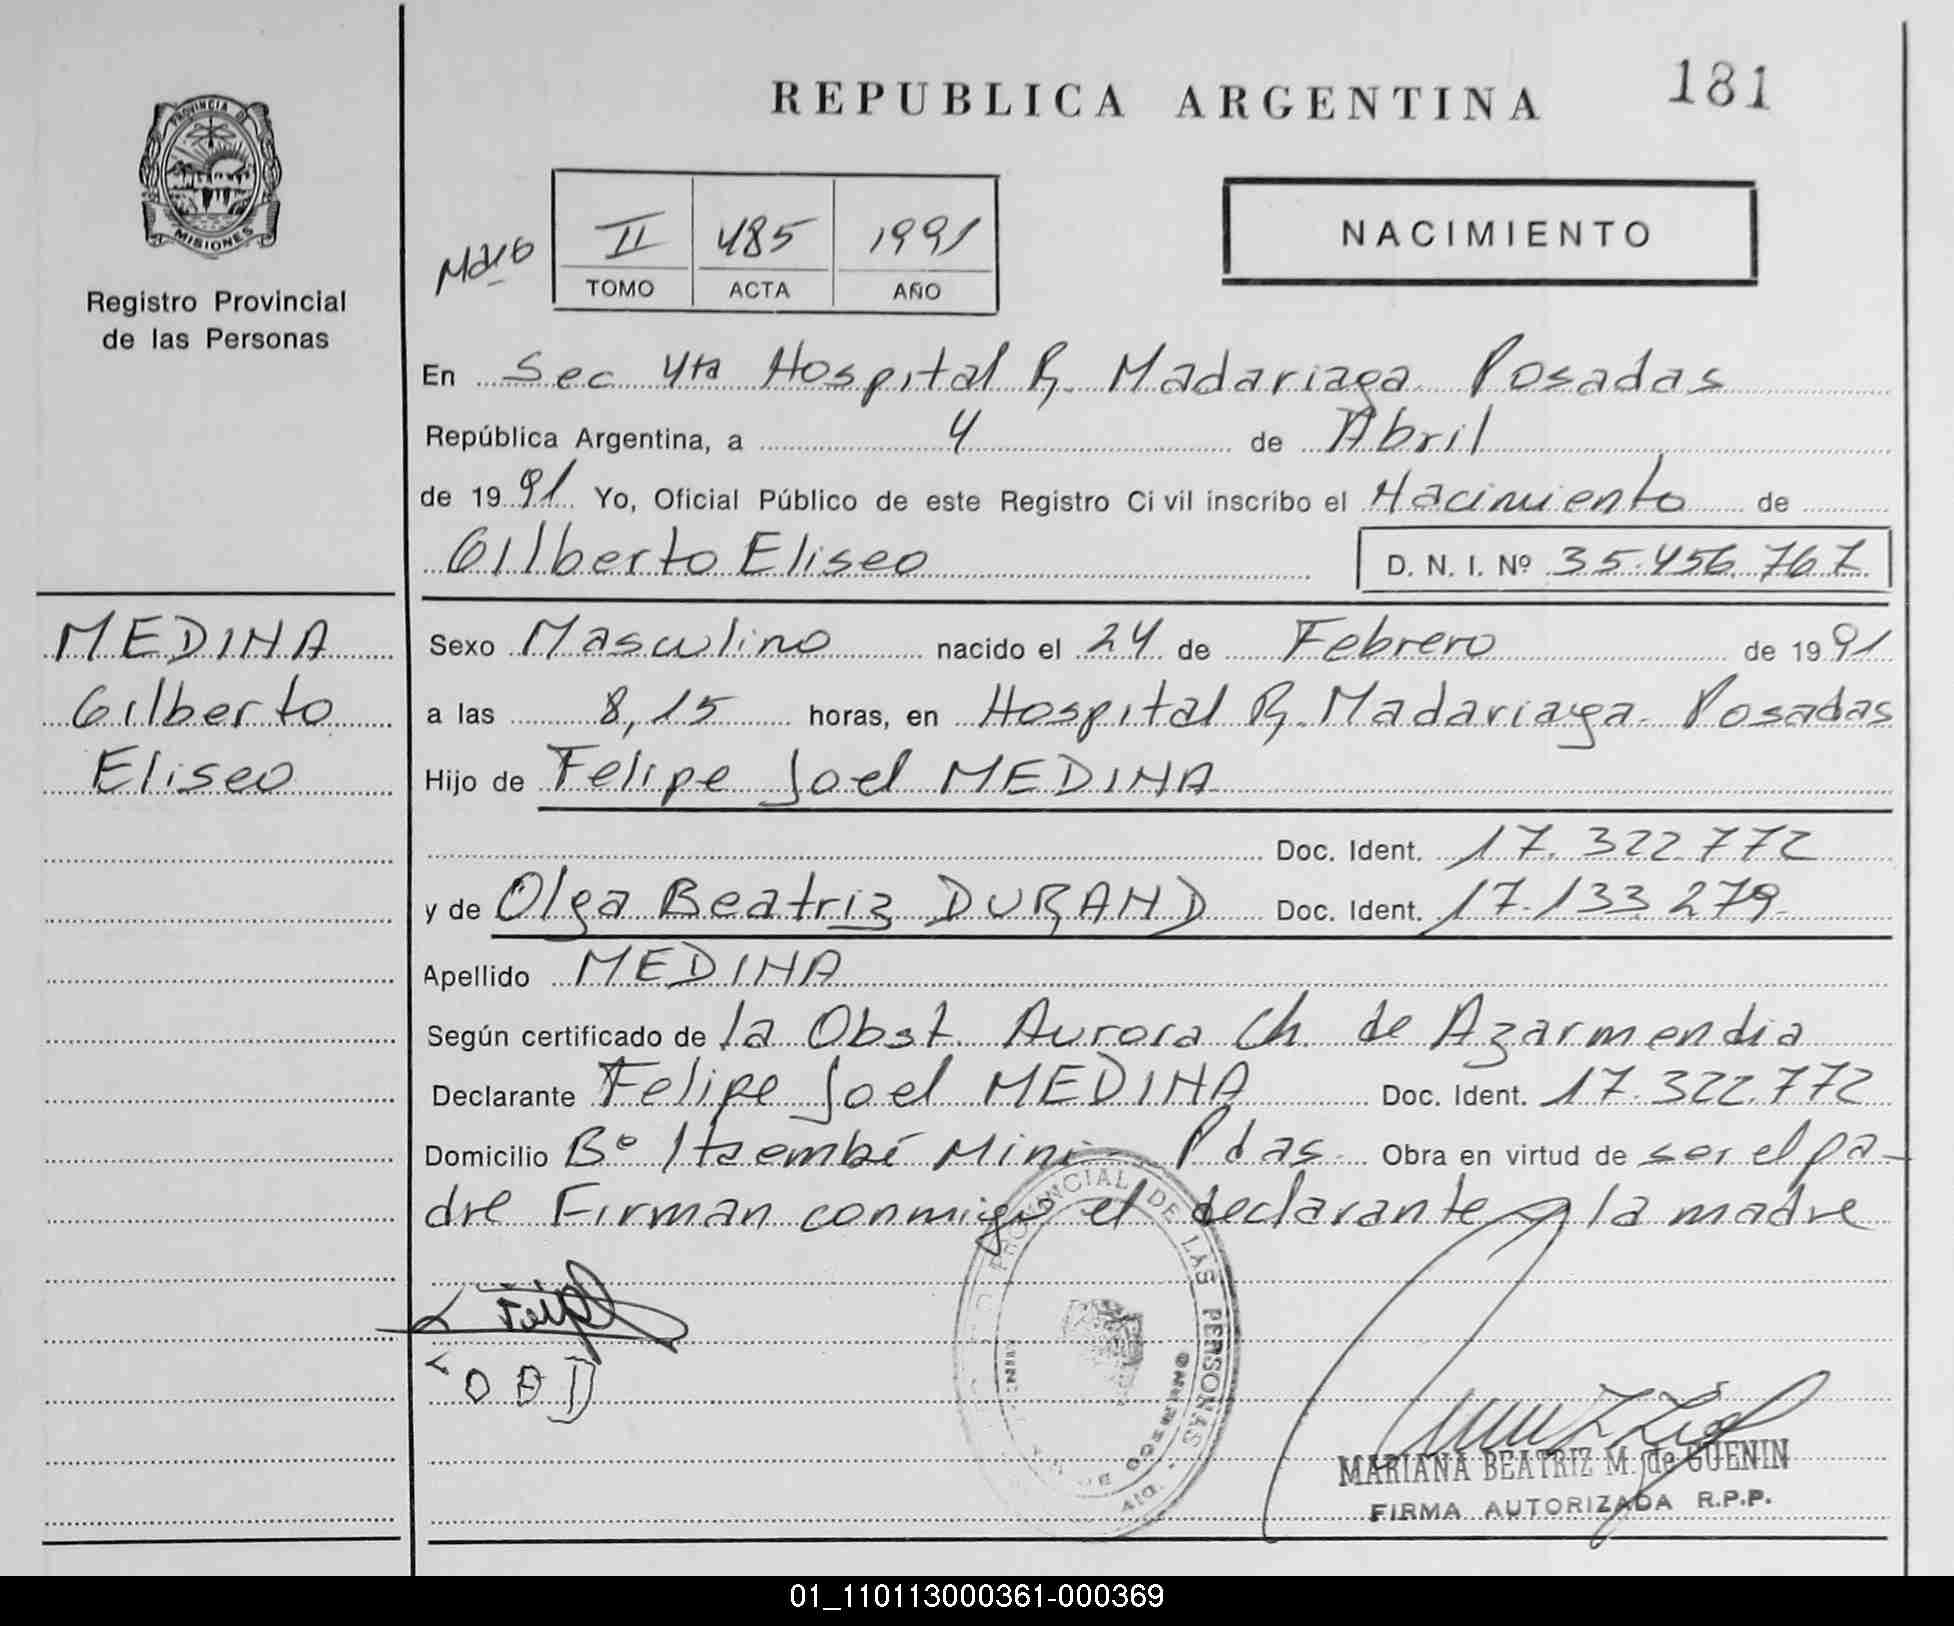 181
REPUBLICA ARGENTINA
PROVINCIA DE
MISIONES
Registro Provincial
de las Personas
NACIMIENTO
II 485 1991
TOMO ACTA AÑO
En Sec 4ta Hospital R. Madariaga Posadas
República Argentina, a 4 de Abril
de 1991 Yo, Oficial Público de este Registro Civil inscribo el Nacimiento de
Gilberto Eliseo D. N. I. Nº 35.456.767
MEDINA
Gilberto
Eliseo
Sexo Masculino nacido el 24 de Febrero de 1991
a las 8,15 horas, en Hospital R. Madariaga Posadas
Hijo de Felipe Joel MEDINA
Doc. Ident. 17.322.772
y de Olga Beatriz DURAND Doc. Ident. 17.133.279
Apellido MEDINA
Según certificado de la Obst. Aurora Ch. de Azarmendia
Declarante Felipe Joel MEDINA Doc. Ident. 17.322.772
Domicilio Bº Itaembé Mini - Pdas. Obra en virtud de ser el pa-
dre Firman conmigo el declarante y la madre
PROVINCIAL DE LAS PERSONAS
MARIANA BEATRIZ M. de GUENIN
FIRMA AUTORIZADA R.P.P.
01_110113000361-000369